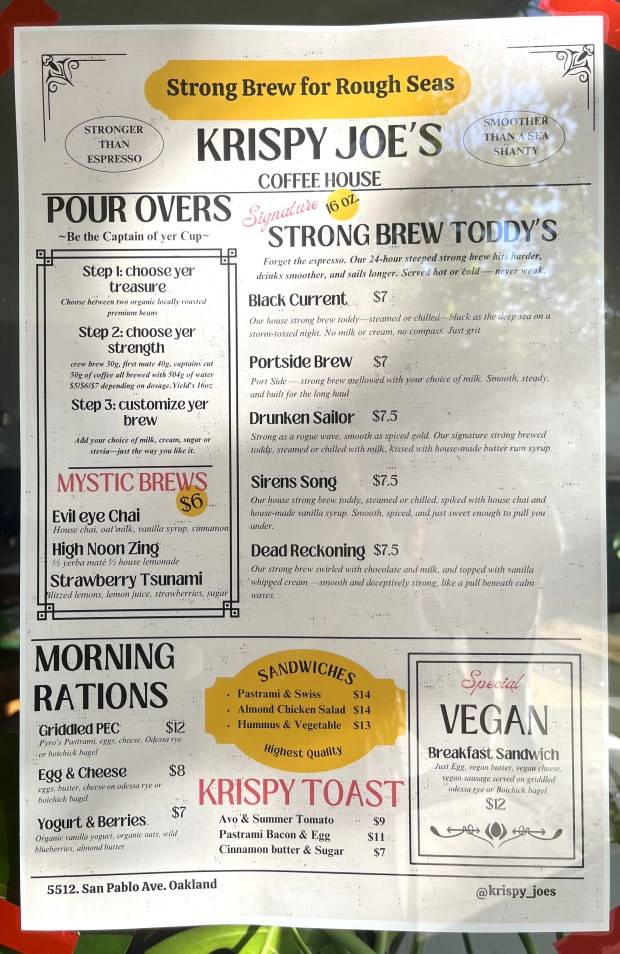 Strong Brew for Rough Seas
STRONGER
THAN
ESPRESSO
KRISPY JOE'S
COFFEE HOUSE
SMOOTHER
THAN A SEA
SHANTY
POUR OVERS
~Be the Captain of yer Cup~
Step 1: choose yer
treasure
Choose between two organic locally roasted
premium beans
Step 2: choose yer
strength
crew brew 30g, first mate 40g, captains cut
50g of coffee all brewed with 504g of water
$5/$6/$7 depending on dosage. Yield's 16oz
Step 3: customize yer
brew
Add your choice of milk, cream, sugar or
stevia—just the way you like it.
MYSTIC BREWS
$6
Evil eye Chai
House chai, oat milk, vanilla syrup, cinnamon
High Noon Zing
½ yerba maté ½ house lemonade
Strawberry Tsunami
Blitzed lemons, lemon juice, strawberries, sugar
Signature 16 oz.
STRONG BREW TODDY'S
Forget the espresso. Our 24-hour steeped strong brew hits harder,
drinks smoother, and sails longer. Served hot or cold — never weak.
Black Current $7
Our house strong brew toddy—steamed or chilled—black as the deep sea on a
storm-tossed night. No milk or cream, no compass. Just grit
Portside Brew $7
Port Side — strong brew mellowed with your choice of milk. Smooth, steady,
and built for the long haul
Drunken Sailor $7.5
Strong as a rogue wave, smooth as spiced gold. Our signature strong brewed
toddy, steamed or chilled with milk, kissed with house-made butter rum syrup
Sirens Song $7.5
Our house strong brew toddy, steamed or chilled, spiked with house chai and
house-made vanilla syrup. Smooth, spiced, and just sweet enough to pull you
under.
Dead Reckoning $7.5
Our strong brew swirled with chocolate and milk, and topped with vanilla
whipped cream —smooth and deceptively strong, like a pull beneath calm
waves.
MORNING
RATIONS
Griddled PEC $12
Pyro's Pastrami, eggs, cheese, Odessa rye
or boichick bagel
Egg & Cheese $8
eggs, butter, cheese on odessa rye or
boichick bagel
Yogurt & Berries $7
Organic vanilla yogurt, organic oats, wild
blueberries, almond butter
SANDWICHES
• Pastrami & Swiss $14
• Almond Chicken Salad $14
• Hummus & Vegetable $13
Highest Quality
KRISPY TOAST
Avo & Summer Tomato $9
Pastrami Bacon & Egg $11
Cinnamon butter & Sugar $7
Special
VEGAN
Breakfast Sandwich
Just Egg, vegan butter, vegan cheese,
vegan sausage served on griddled
odessa rye or Boichick bagel
$12
5512. San Pablo Ave. Oakland
@krispy_joes